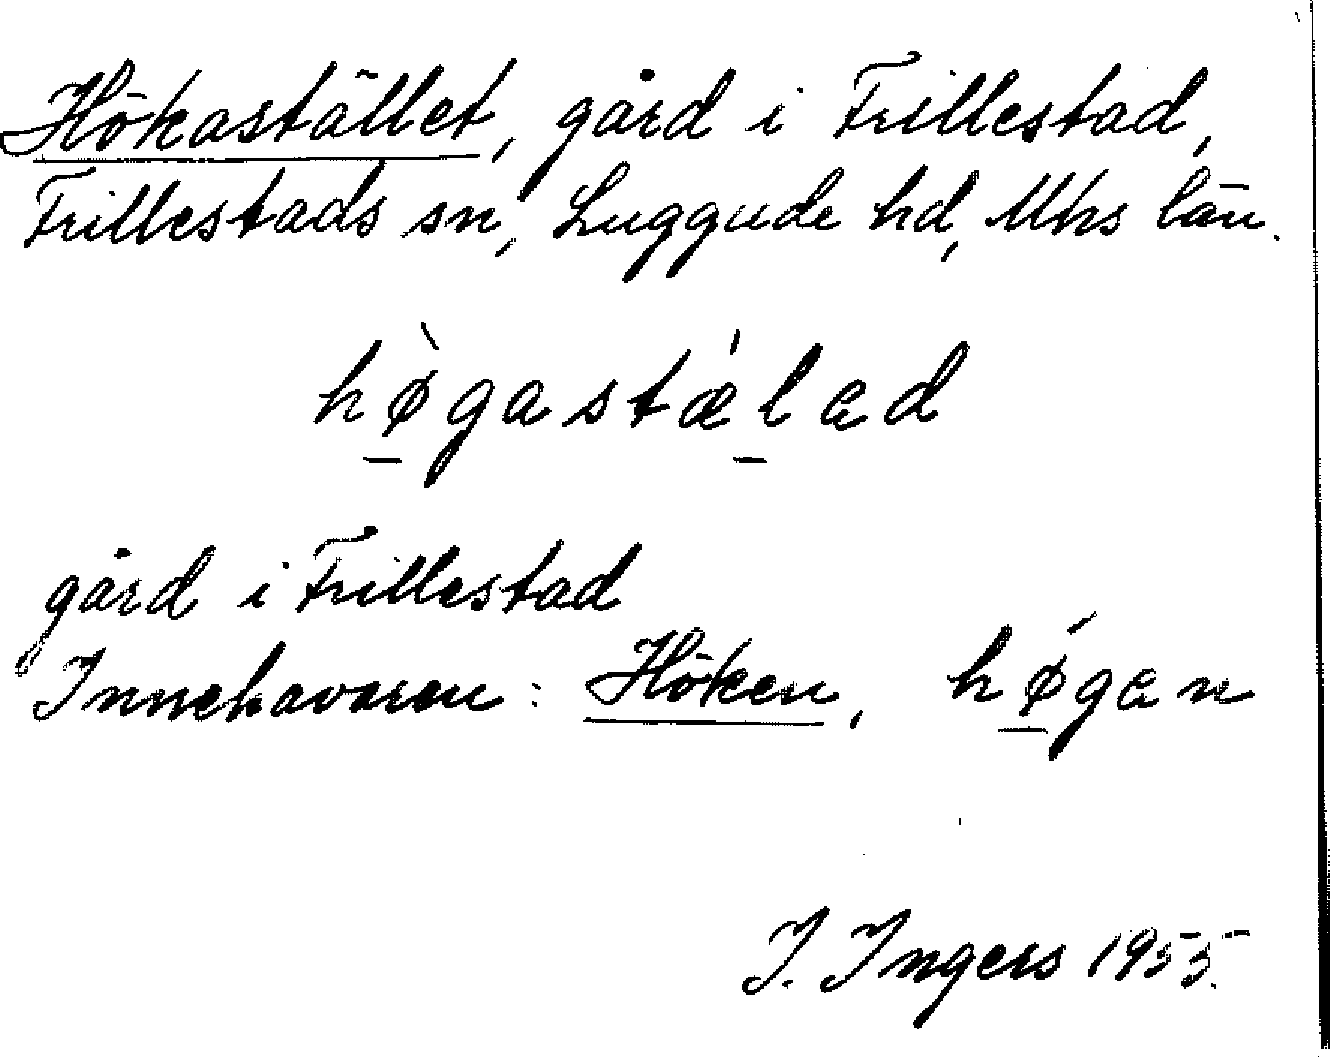 Hökastället, gård i Frillestad,
Frillestads sn, Luggude hd, Mhs län.
hø̀gastǽlæd
gård i Frillestad
Innehavaren: Höken, hǿgæn
I. Ingers 1955.